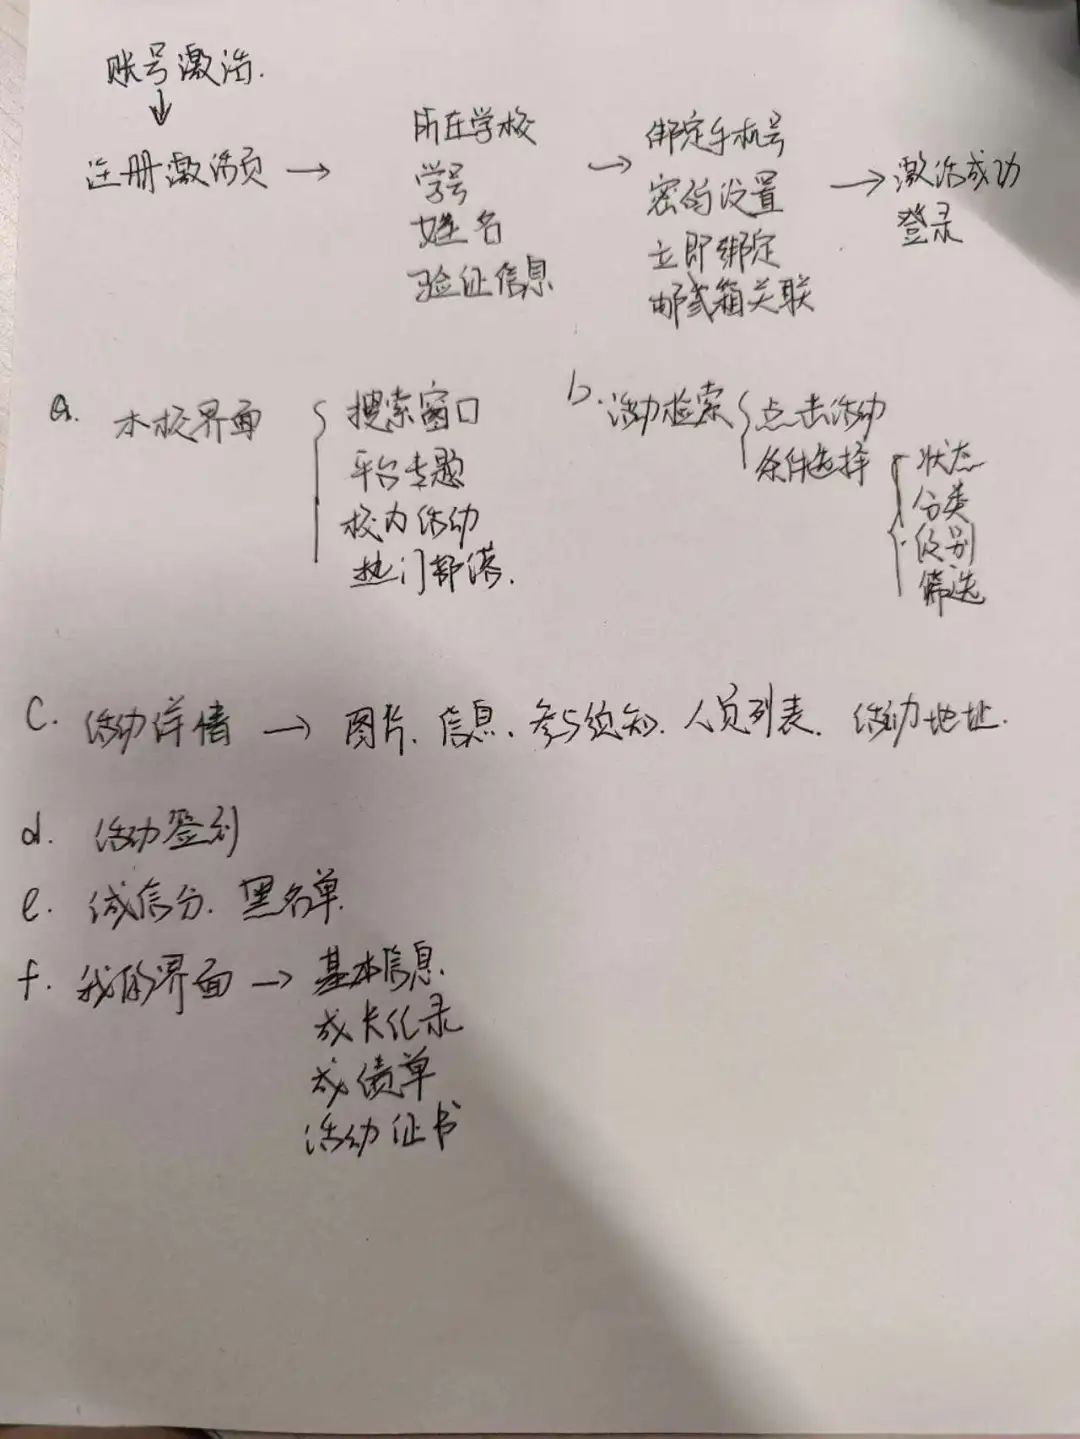 账号激活.
↓
注册激活页 →
所在学校
学号
姓名
验证信息
→
绑定手机号
密码设置
立即绑定
邮箱关联
→ 激活成功
登录
a. 本校界面
搜索窗口
平台专题
校内活动
热门部落.
b. 活动检索
点击活动
条件选择
状态
分类
级别
筛选
C. 活动详情 → 图片、信息、参与须知、人员列表、活动地址.
d. 活动签到
e. 诚信分. 黑名单.
f. 我的界面 → 基本信息.
成长记录
成绩单
活动证书